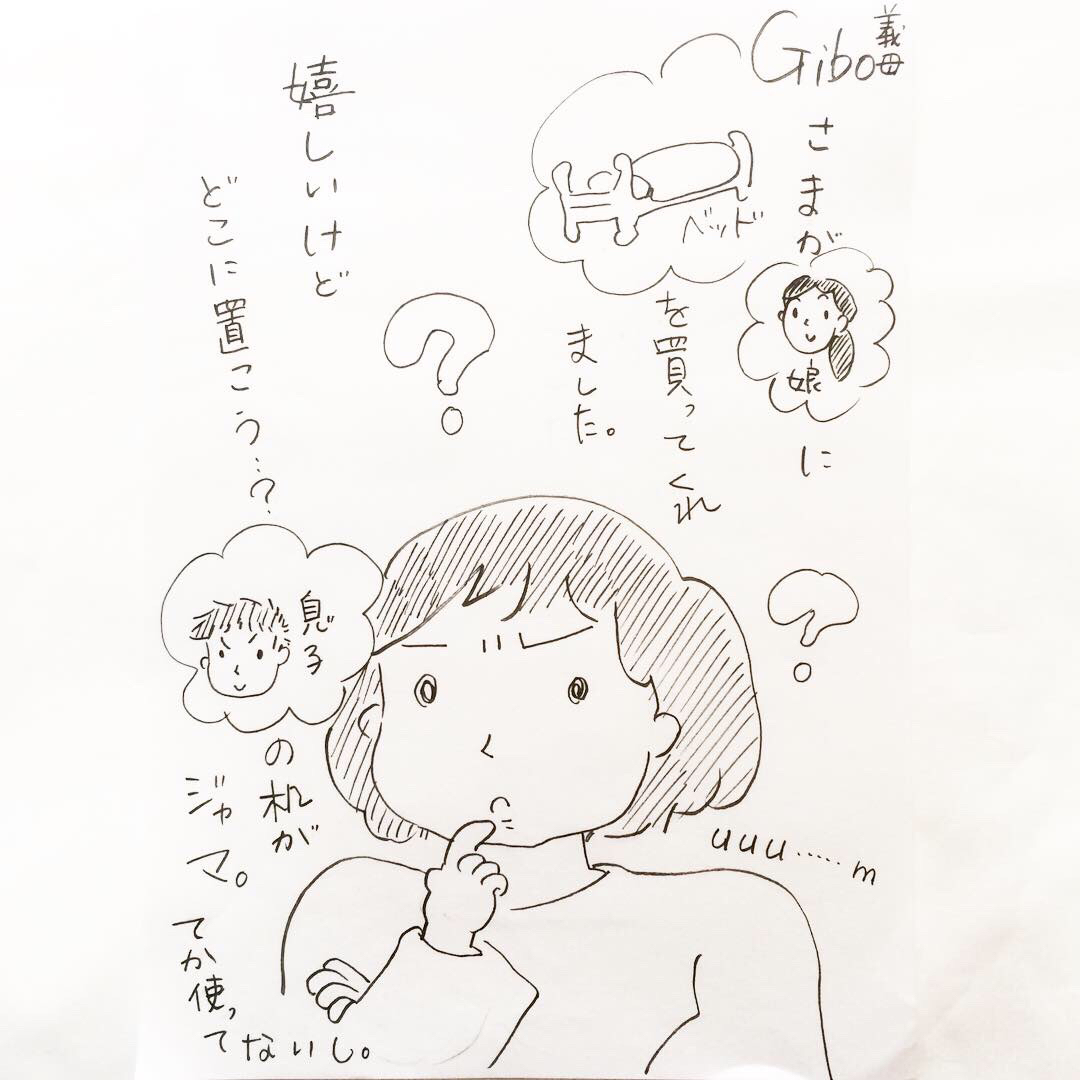 Gibo義母
さまが
娘
に
ベッド
を買ってくれ
ました。
嬉しいけど
どこに置こう…?
息子
の机が
ジャマ。
てか使っ
てないし。
uuu……m